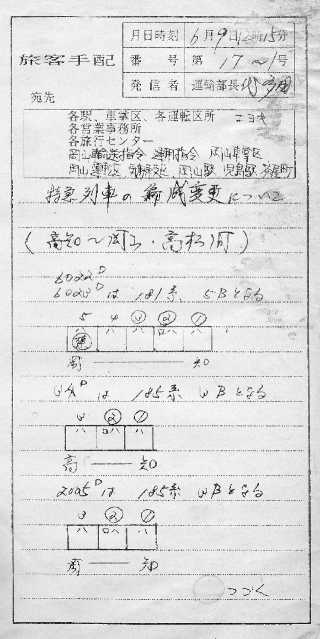 旅客手配
月日時刻 6月9日 時15分
番号 第17〜1号
発信者 運輸部長
宛先
各駅、車掌区、各運転区所
各営業事務所
各旅行センター
岡山輸送指令 運用指令 岡山車掌区
岡山運転区 岡山駅 児島駅 茶屋町
特急列車の編成変更について
(高知〜岡山・高松间)
6022D
6023Dは 181系 5Bとなる
5 4 ③ ② ①
ハ ロハ ハ
岡 ― 知
4Dは 185系 3Bとなる
3 ② ①
ハ ロハ ハ
高 ― 知
2005Dは 185系 3Bとなる
3 ② ①
ハ ロハ ハ
岡 ― 知
つづく